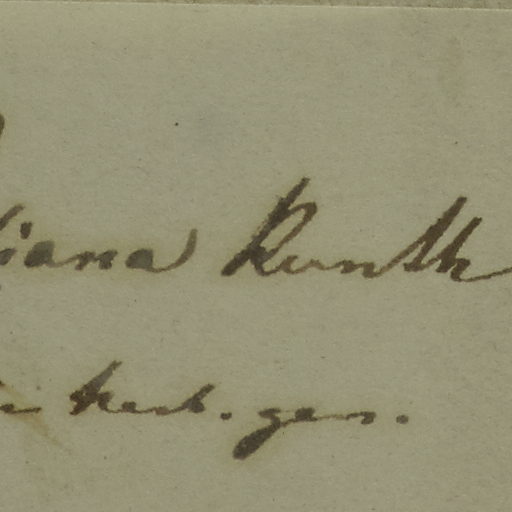 iana Kunth
herb. gen.